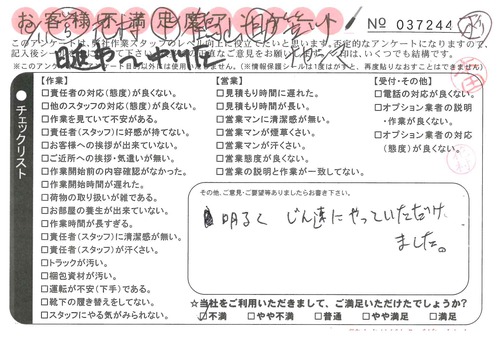 お客様不満足度アンケート
No 037244
このアンケートは、弊社作業スタッフのレベル向上に役立てたいと思います。否定的なアンケートになりますので、
※このアンケートデータは目的以外には使用いたしません。(※情報保護シールは1度はがすと、再度貼りなおすことはできません)
チェックリスト
【作業】
□責任者の対応(態度)が良くない。
□他のスタッフの対応(態度)が良くない。
□作業を見ていて不安がある。
□責任者(スタッフ)に好感が持てない。
□お客様への挨拶が出来ていない。
□ご近所への挨拶・気遣いが無い。
□作業開始前の内容確認がなかった。
□作業開始時間が遅れた。
□荷物の取り扱いが雑である。
□お部屋の養生が出来ていない。
□作業時間が長すぎる。
□責任者(スタッフ)に清潔感が無い。
□責任者(スタッフ)が汗くさい。
□トラックが汚い。
□梱包資材が汚い。
□運転が不安(下手)である。
□靴下の履き替えをしてない。
□スタッフにやる気がみられない。
【営業】
□見積もり時間に遅れた。
□見積もり時間が長い。
□営業マンに清潔感が無い。
□営業マンが煙草くさい。
□営業マンが汗くさい。
□営業態度が良くない。
□営業の説明と作業が一致してない。
【受付・その他】
□電話の対応が良くない。
□オプション業者の説明
・作業が良くない。
□オプション業者の対応
(態度)が良くない。
その他、ご意見・ご要望等ありましたらお書き下さい。
明るく じん速にやっていただけ
ました。
☆当社をご利用いただきまして、ご満足いただけたでしょうか?
□不満 □やや不満 □普通 □やや満足 □満足